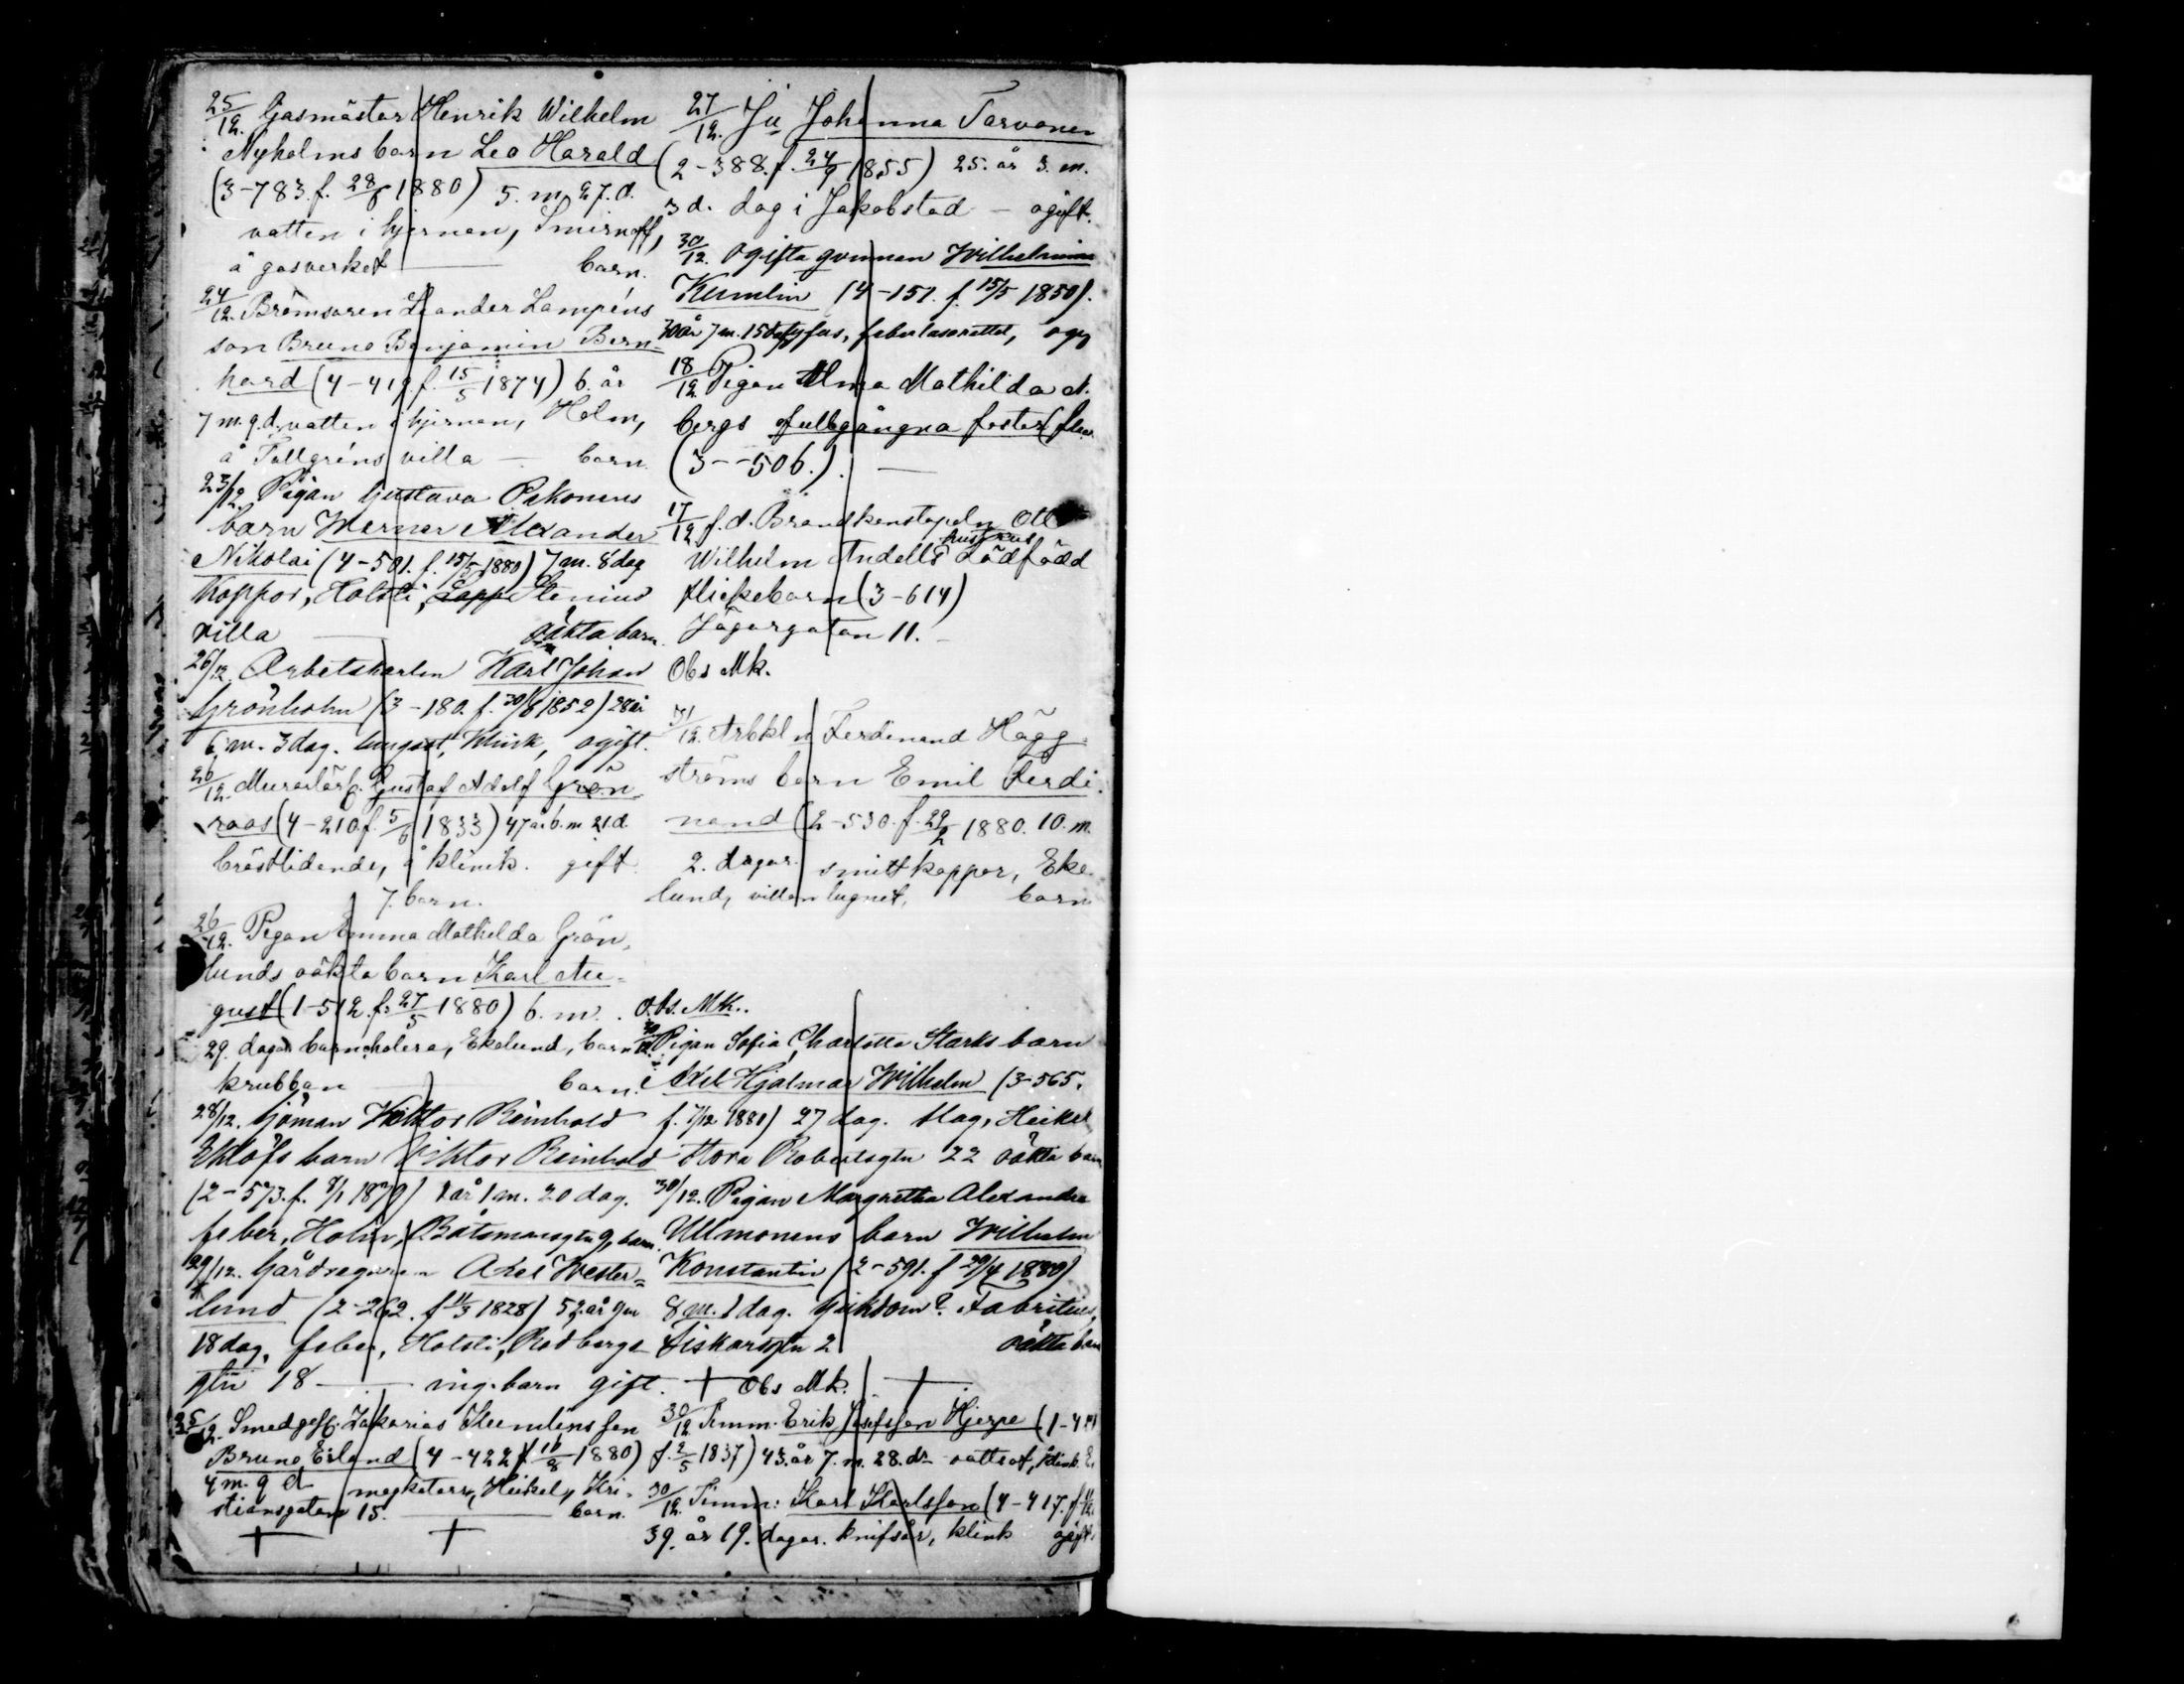 25/12. Gasmästar Henrik Wilhelm
Nyholms barn Leo Harald
(3-783. f. 28/6 1880) 5. m. 27. d.
vatten i hjernan, Smirnoff,
å gasverket — barn.
24/12. Bromsaren Leander Lampéns
son Bruno Benjamin Bern-
hard (4-419 f. 15/5 1874) 6. år
7 m. 9. d. vatten i hjernan, Holm,
å Tallgréns villa — barn.
23/12 Pigan Gustava Pakonens
barn Werner Alexander
Nikolai (4-501. f. 15/5 1880) 7 m. 8 dag
Koppor, Holsti, Lapp Stenius
villa — oäkta barn.
26/12. Arbetskarlen Karl Johan
Grönholm (3-180. f. 30/6 1852) 28 år
6 m. 3 dag. lungsot, Klinik, ogift.
26/12. Murarlärl. Gustaf Adolf Grön
roos (4-210 f. 5/6 1833) 47 år 6. m 21 d.
bröstlidande, å klinik. gift
7. barn.
26/12. Pigan Emma Mathilda Grön-
lunds oäkta barn Karl Au-
gust (1-512. f. 27/5 1880) 6. m.
29. dagar barncholera, Ekelund, barn
krubban — barn.
28/12. Sjöman Viktor Reinhold
Eklöfs barn Viktor Reinhold
(2-573. f. 8/1 1879) 1 år 1 m. 20 dag.
feber, Holm, Båtsmansgtn 9, barn.
29/12. Gårdsegaren Axel Wester-
lund (2-262. f 11/3 1828) 52 år 9 m
18 dag. feber, Holsti, Rodbergs
gtn 18 — ing. barn gift.
25/12. Smedges. Zakarias Kumlins son
Bruno Erland (4-422 f. 16/8 1880)
4 m. 9 d magkatarr, Heikel, Kri-
stiansgatan 15. — barn.
27/12. Ju Johanna Tarvonen
(2-388. f. 24/9 1855) 25. år 3. m.
3 d. dog i Jakobstad — ogift.
30/12. ogifta qvinnan Wilhelmina
Kumlin (4-151. f. 15/5 1850).
30 år 7 m. 15 d. tyfus, feberlasarettet, ogg
18/12. Pigan Alma Mathilda
bergs fullgångna foster
(3--506.). —
17/12 f. d. Brandkonstapeln Otto
Wilhelm Andells hustrus dödfödd
flickebarn (3-614)
Jägargatan 11. —
Obs Mk.
31/12. Arbkln Ferdinand Hägg-
ströms barn Emil Ferdi-
nand (2-530. f. 29/2 1880. 10. m.
2. dagar. smittkoppor, Eke-
lund, villan lugnet, barn
Obs. Mk..
30/12. Pigan Sofia Charlotta Starks barn
Axel Hjalmar Wilhelm (3-565.
f. 7/12 1880) 27 dag. slag, Heikel
Stora Robertsgtn 22 oäkta barn
30/12. Pigan Margretha Alexandra
Ullmonens barn Wilhelm
Konstantin (2-591. f 29/4 1880)
8 m. 1 dag. sjukdom? Fabritius,
Fiskarsgtn 2 oäkta barn
+ Obs Mk. +
30/12. Timm. Erik Josefsson Hjerpe (1-4
f. 2/5 1837) 43. år 7. m. 28. d. vattsot, klink.
30/12. Timm: Karl Karlsson (4-417. f
39. år 19. dagar. knifsår, klink ogift.